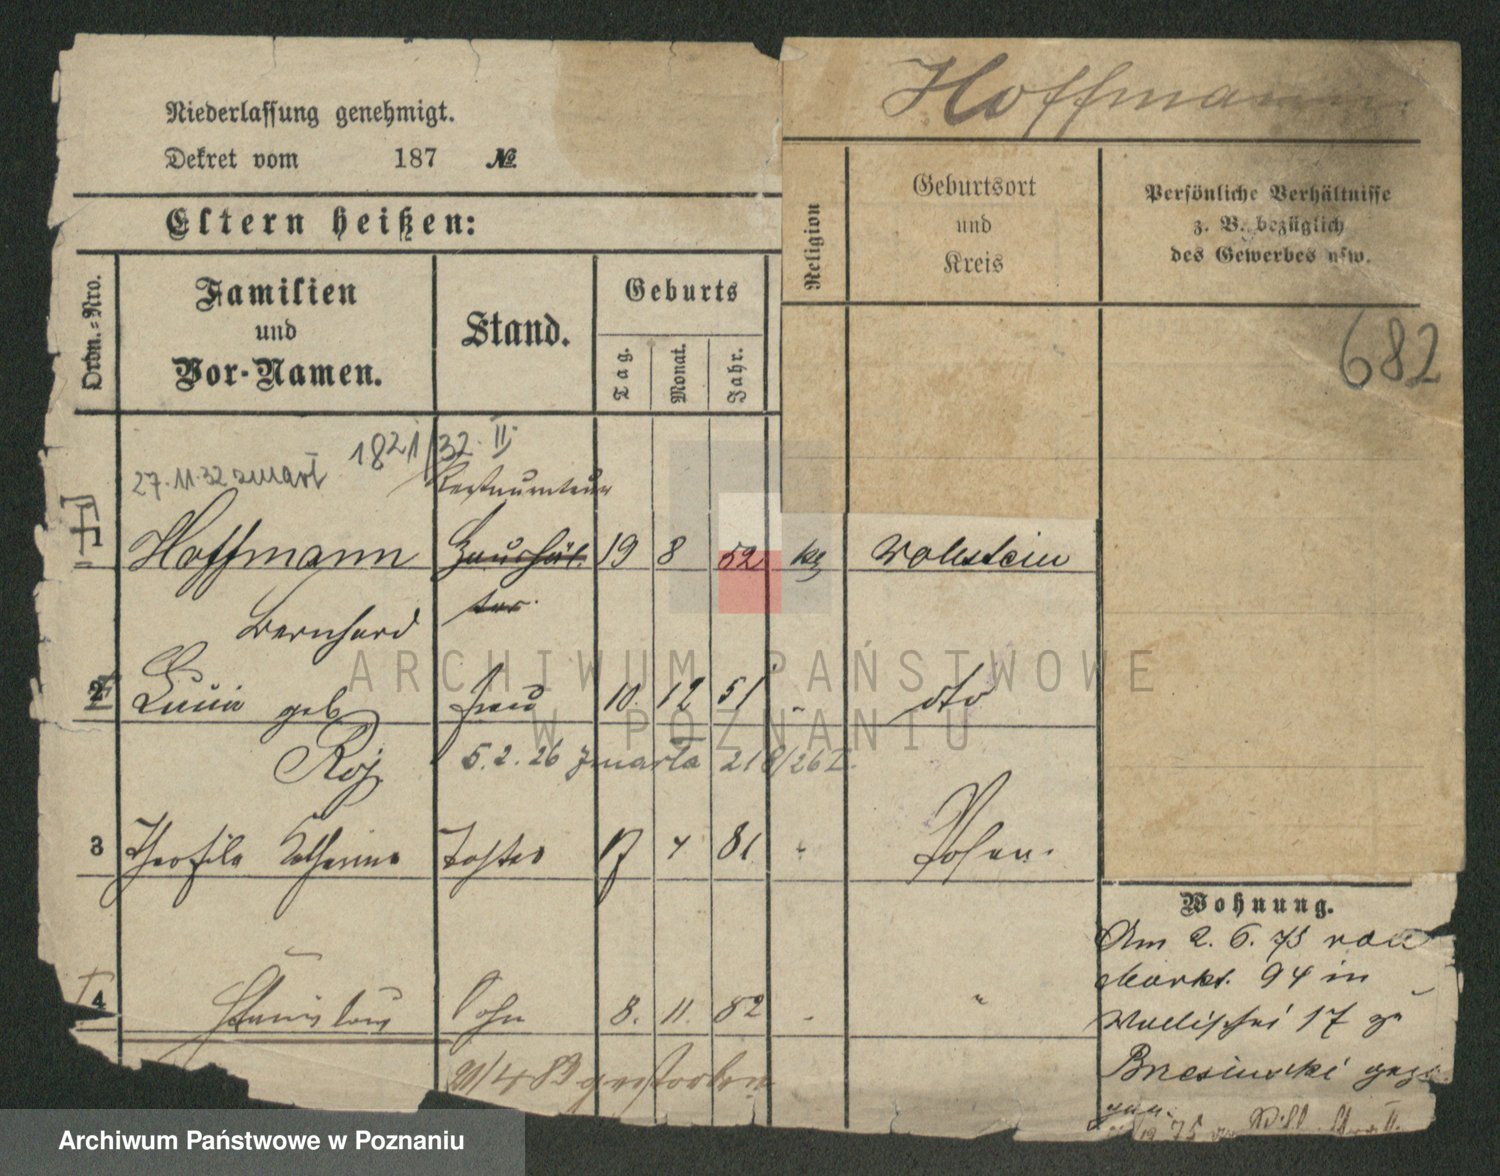 Hoffmann
Niederlassung genehmigt.
Dekret vom 187 №
Eltern heißen:
Ordn.-Nro.
Familien
und
Vor-Namen.
Stand.
Geburts
Tag.
Monat.
Jahr.
Religion
Geburtsort
und
Kreis
Persönliche Verhältnisse
z. B. bezüglich
des Gewerbes usw.
682
1821/32 II
27.11.32 zmarł
Restaurateur
Hoffmann Haushäl- 19 8 52 kth Wollstein
Bernhard ter
2 geb Frau 10. 12 51 dto
5.2.26 zmarła 218/26 I.
3 Theofila Catharina Tochter 4 81 Posen.
4 Stanislaus Sohn 8. 11. 82 "
21/4 89 gestorben
Wohnung.
Am 2. 6. 75 von
Markt. 94 in
Wallischei 17 zu
ARCHIWUM PAŃSTWOWE
W POZNANIU
Archiwum Państwowe w Poznaniu